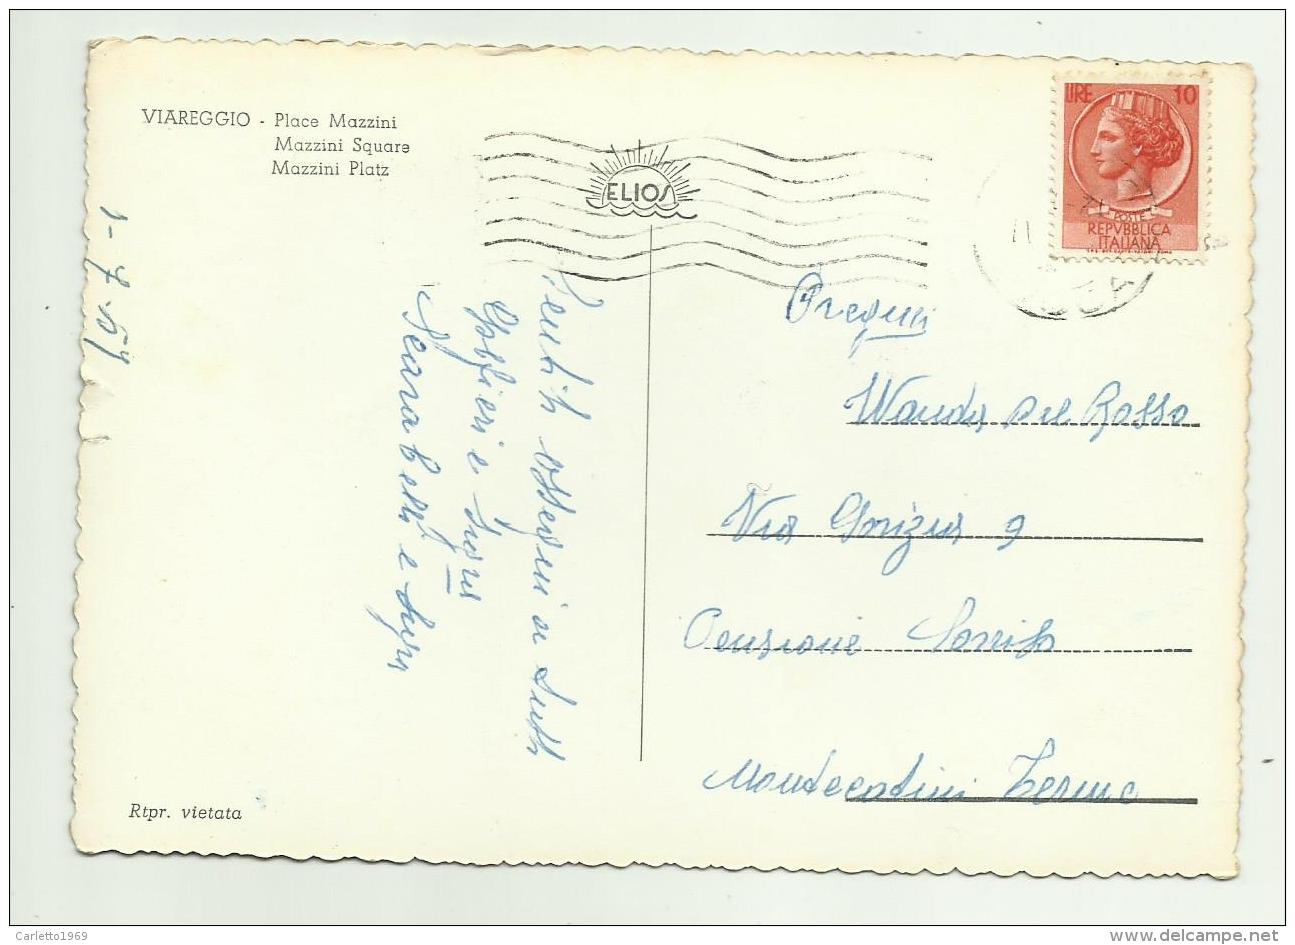 VIAREGGIO - Place Mazzini
Mazzini Square
Mazzini Platz
1-7-59
ELIOS
LIRE 10
POSTE
REPVBBLICA
ITALIANA
Gentili ossequi a tutti
e
e
Wanda Del Rosso
Via Gorizia 9
Pensione Sorriso
Montecatini Terme
Rtpr. vietata
Carletto1969
delcampe.net